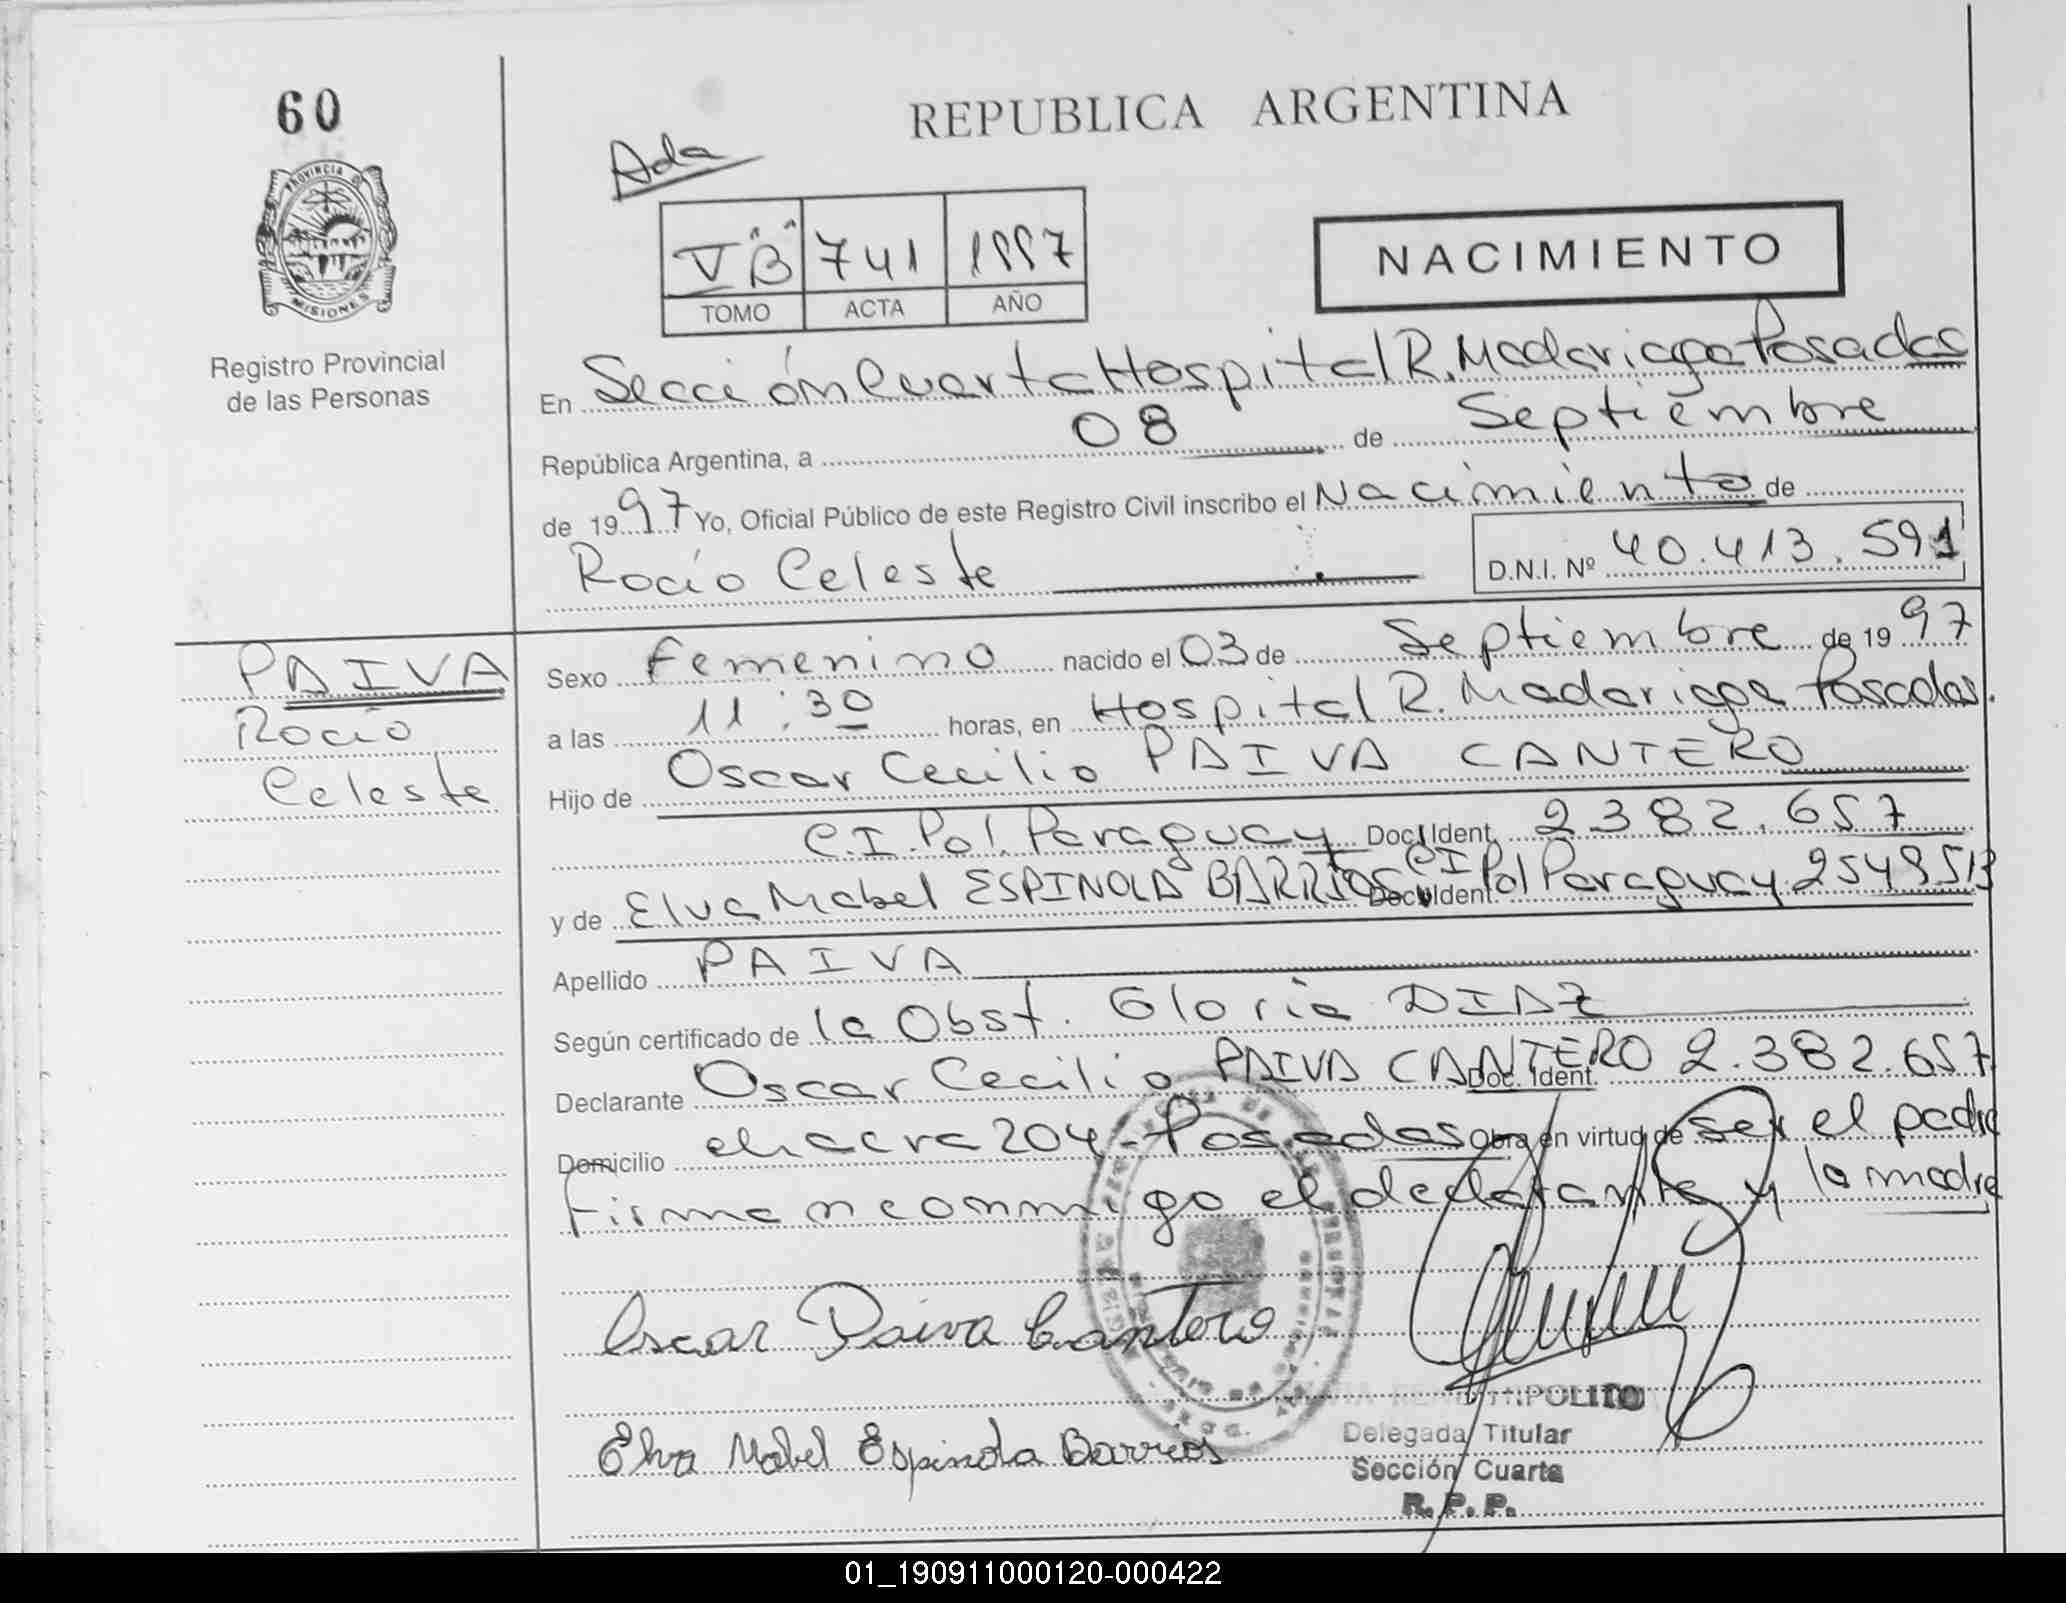 60
REPUBLICA ARGENTINA
Ada
PROVINCIA D
MISIONES
V "B" 741 1997
TOMO ACTA AÑO
NACIMIENTO
Registro Provincial
de las Personas
En Sección Cuarta Hospital R. Madariaga Posadas
República Argentina, a 08 de Septiembre
de 1997 Yo, Oficial Público de este Registro Civil inscribo el Nacimiento de
Rocío Celeste D.N.I. Nº 40.413.591
PAIVA
Rocío
Celeste
Sexo Femenino nacido el 03 de Septiembre de 1997
a las 11:30 horas, en Hospital R. Madariaga Posadas.
Hijo de Oscar Cecilio PAIVA CANTERO
C.I. Pol. Paraguay Doc. Ident. 2382.657
y de Elva Mabel ESPINOLA BARRIOS Doc. Ident. CI Pol Paraguay 2549513
Apellido PAIVA
Según certificado de la Obst. Gloria DIAZ
Declarante Oscar Cecilio PAIVA CANTERO Doc. Ident. 2.382.657
Domicilio chacra 204 - Posadas Obra en virtud de ser el padre
Firman conmigo el declarante y la madre
Oscar Paiva Cantero
Elva Mabel Espinola Barrios
HIPOLITO
Delegada Titular
Sección Cuarta
R. P. P.
01_190911000120-000422